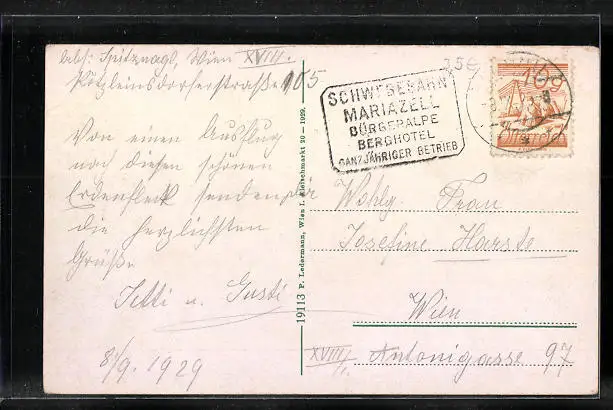 abs: Spitznagl, Wien XVIII.
Pötzleinsdorferstraße 105
Von einen Ausflug
nach diesen schönen
Erdenfleck senden
die herzlichsten
Grüße
Tetti u. Gusti
8/9. 1929
19113 P. Ledermann, Wien I. Fleischmarkt 20 - 1929.
SCHWEBEBAHN
MARIAZELL
BÜRGERALPE
BERGHOTEL
GANZJÄHRIGER BETRIEB
10g
Wohlg. Frau
Josefine Harste
Wien
XVIII/1. Antonigasse 97